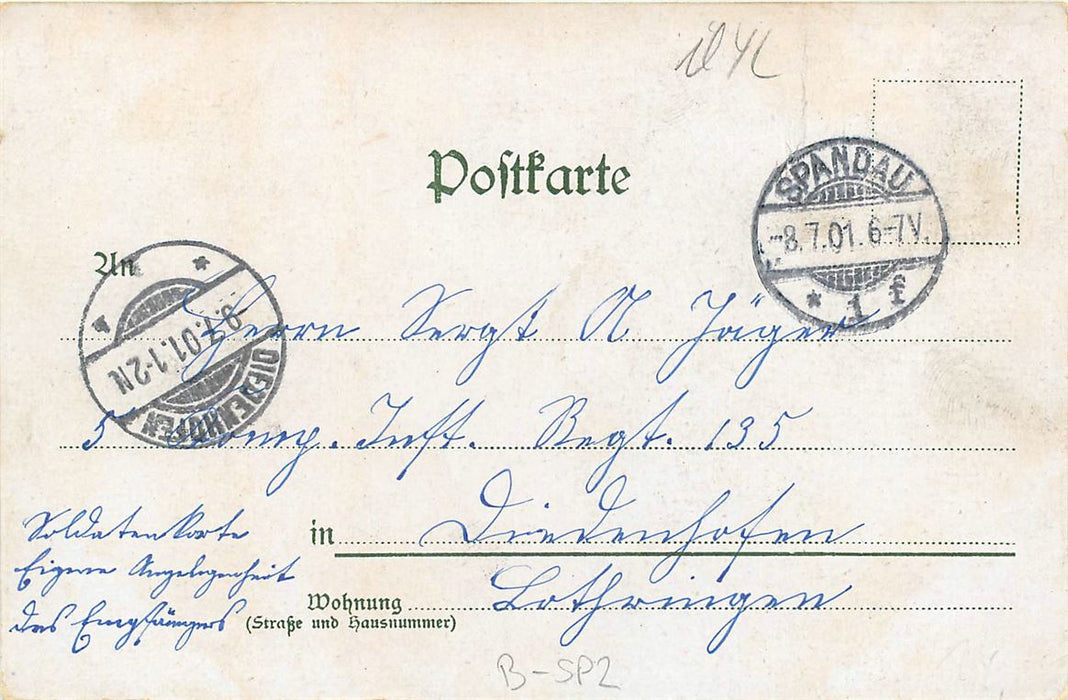 Postkarte
SPANDAU
-8.7.01.6-7V.
* 1 f
An
DIEDENHOFEN
-9.7.01.1-2N
Herrn Sergt A Jäger
5 Komp. Inft. Regt. 135
in Diedenhofen
Wohnung Lothringen
(Straße und Hausnummer)
Soldatenkarte
Eigene Angelegenheit
des Empfängers
B-SP2